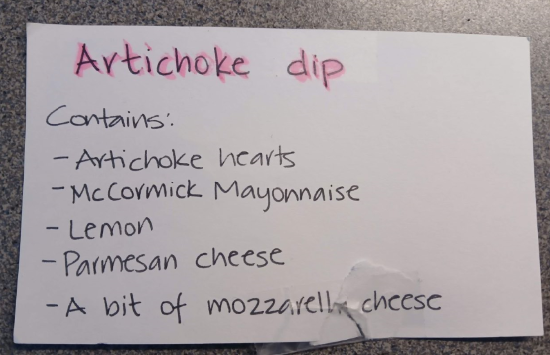 Artichoke dip
Contains:
- Artichoke hearts
- McCormick Mayonnaise
- Lemon
- Parmesan cheese
- A bit of mozzarella cheese